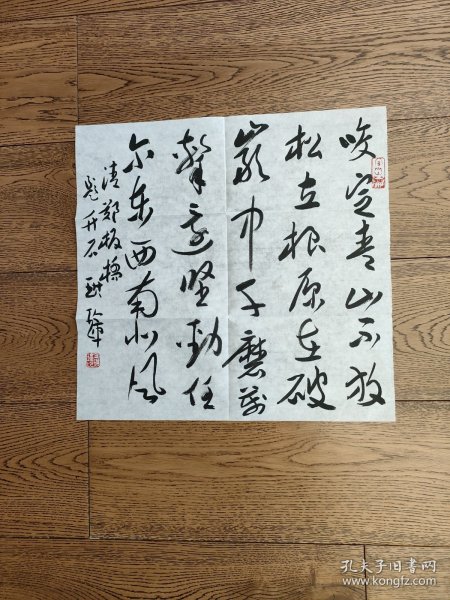 咬定青山不放
松立根原在破
巖中千磨萬
擊還堅勁任
尔東西南北风
清郑板橋
竹石
孔夫子旧书网
www.kongfz.com